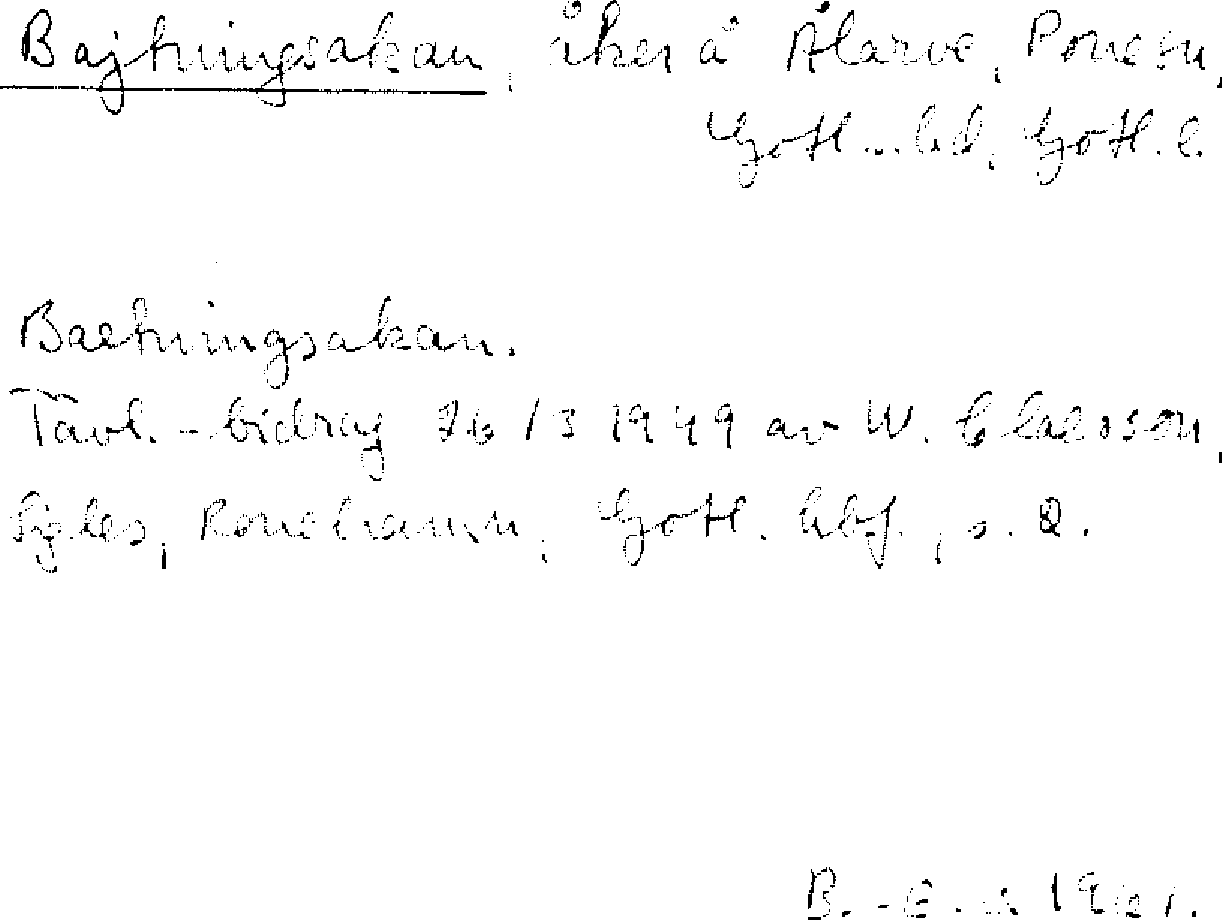 Bajtningsakan, åker å Ålarve, Rone sn,
Gotl. s. hd, Gotl. l.
Baetningsakan.
Tävl.-bidrag 26/3 1949 av W. Claesson,
Sigles, Ronehamn, Gotl. hbf., s. 2.
B.-E.